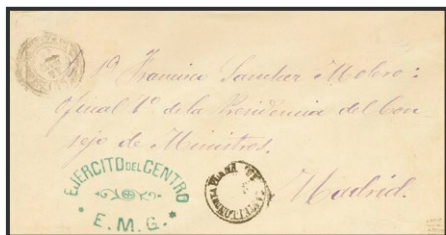 Sr. Francisco Sanchez Molero:
Oficial 1º de la Presidencia del Con
sejo de Ministros.
Madrid.
EJERCITO DEL CENTRO
* E. M. G. *